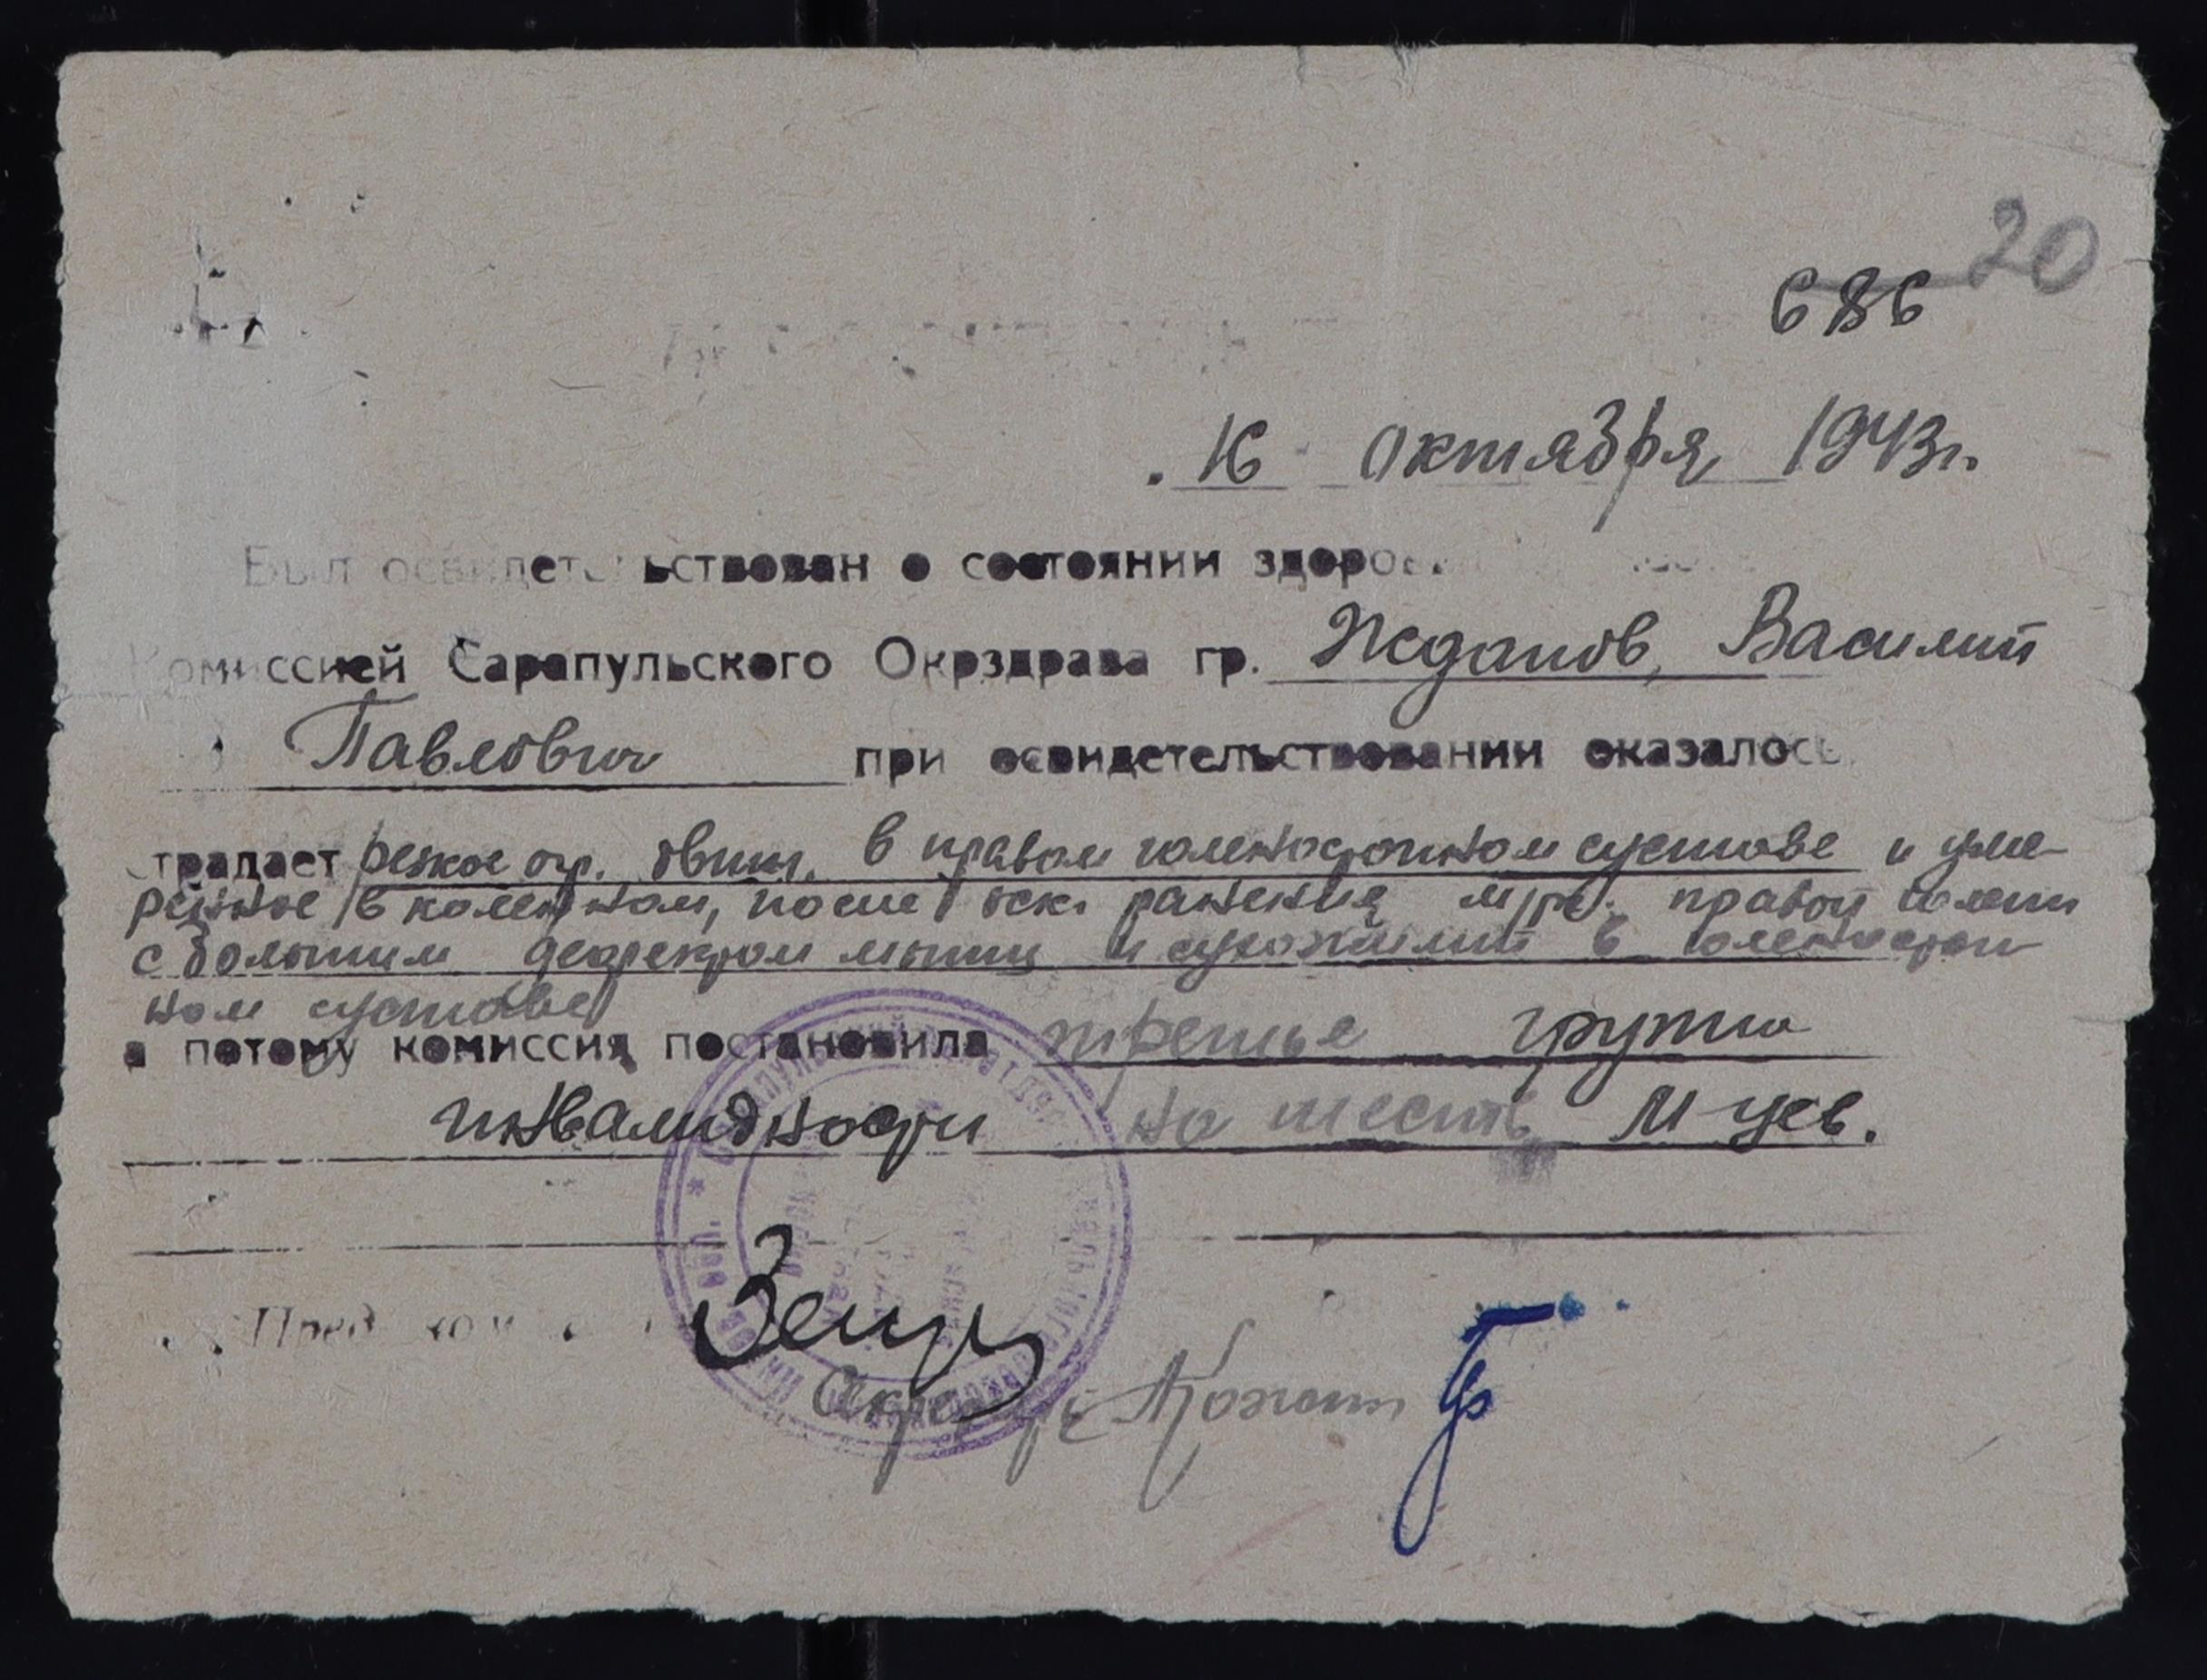 20
686
16 Октября 1943 г.
Был освидетельствован о состоянии здоров
Комиссией Сарапульского Окрздрава гр. Жданов, Василий
Павлович при освидетельствовании оказалось
страдает резкое огр. движ. в правом голеностопном суставе и уме-
ренное в коленном, после оск. ранения м/тк. правой голени
с большим дефектом мышц и сухожилий в голеностоп
ном суставе
а потому комиссия постановила третье группа
инвалидности на шесть м-цев.
Пред ком